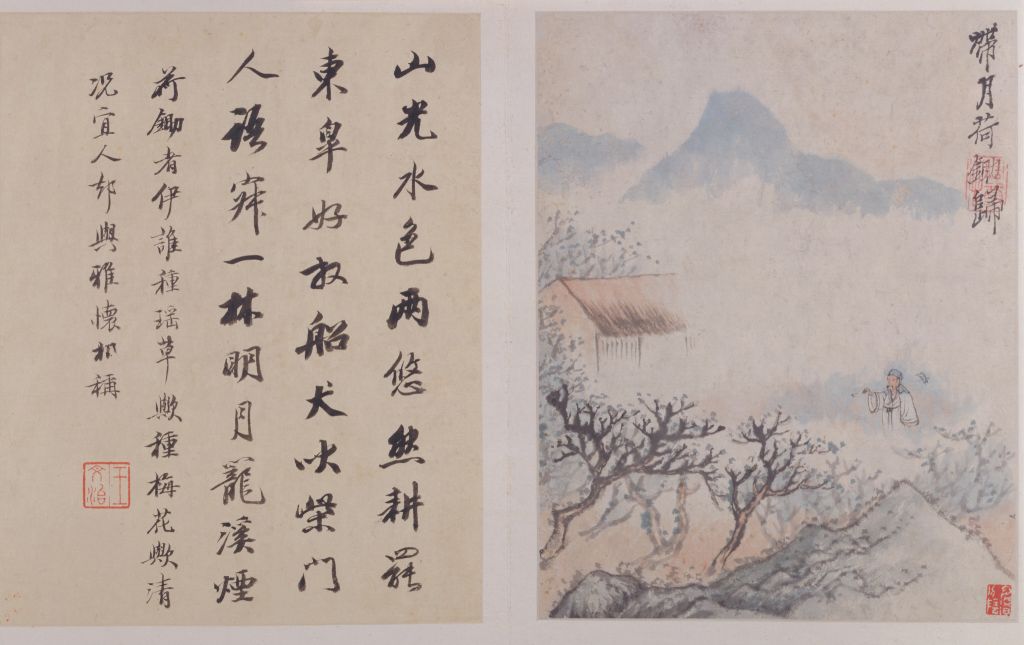 帶月荷鋤歸
山光水色两悠然耕罷
東皐好放船犬吠柴門
人語寂一林明月籠溪煙
荷鋤者伊誰種瑶草歟種梅花歟清
况宜人却與雅懷相稱
王文治